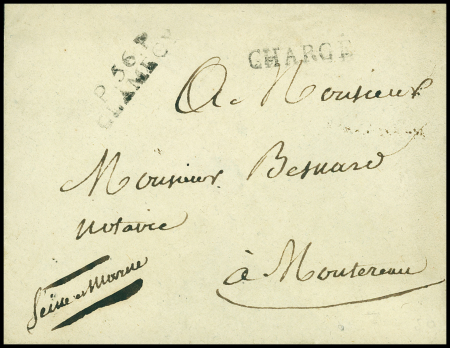 P.56.P.
CLAMECY
CHARGÉ
A Monsieur
Monsieur Besnard
notaire
à Montereau
Seine et Marne